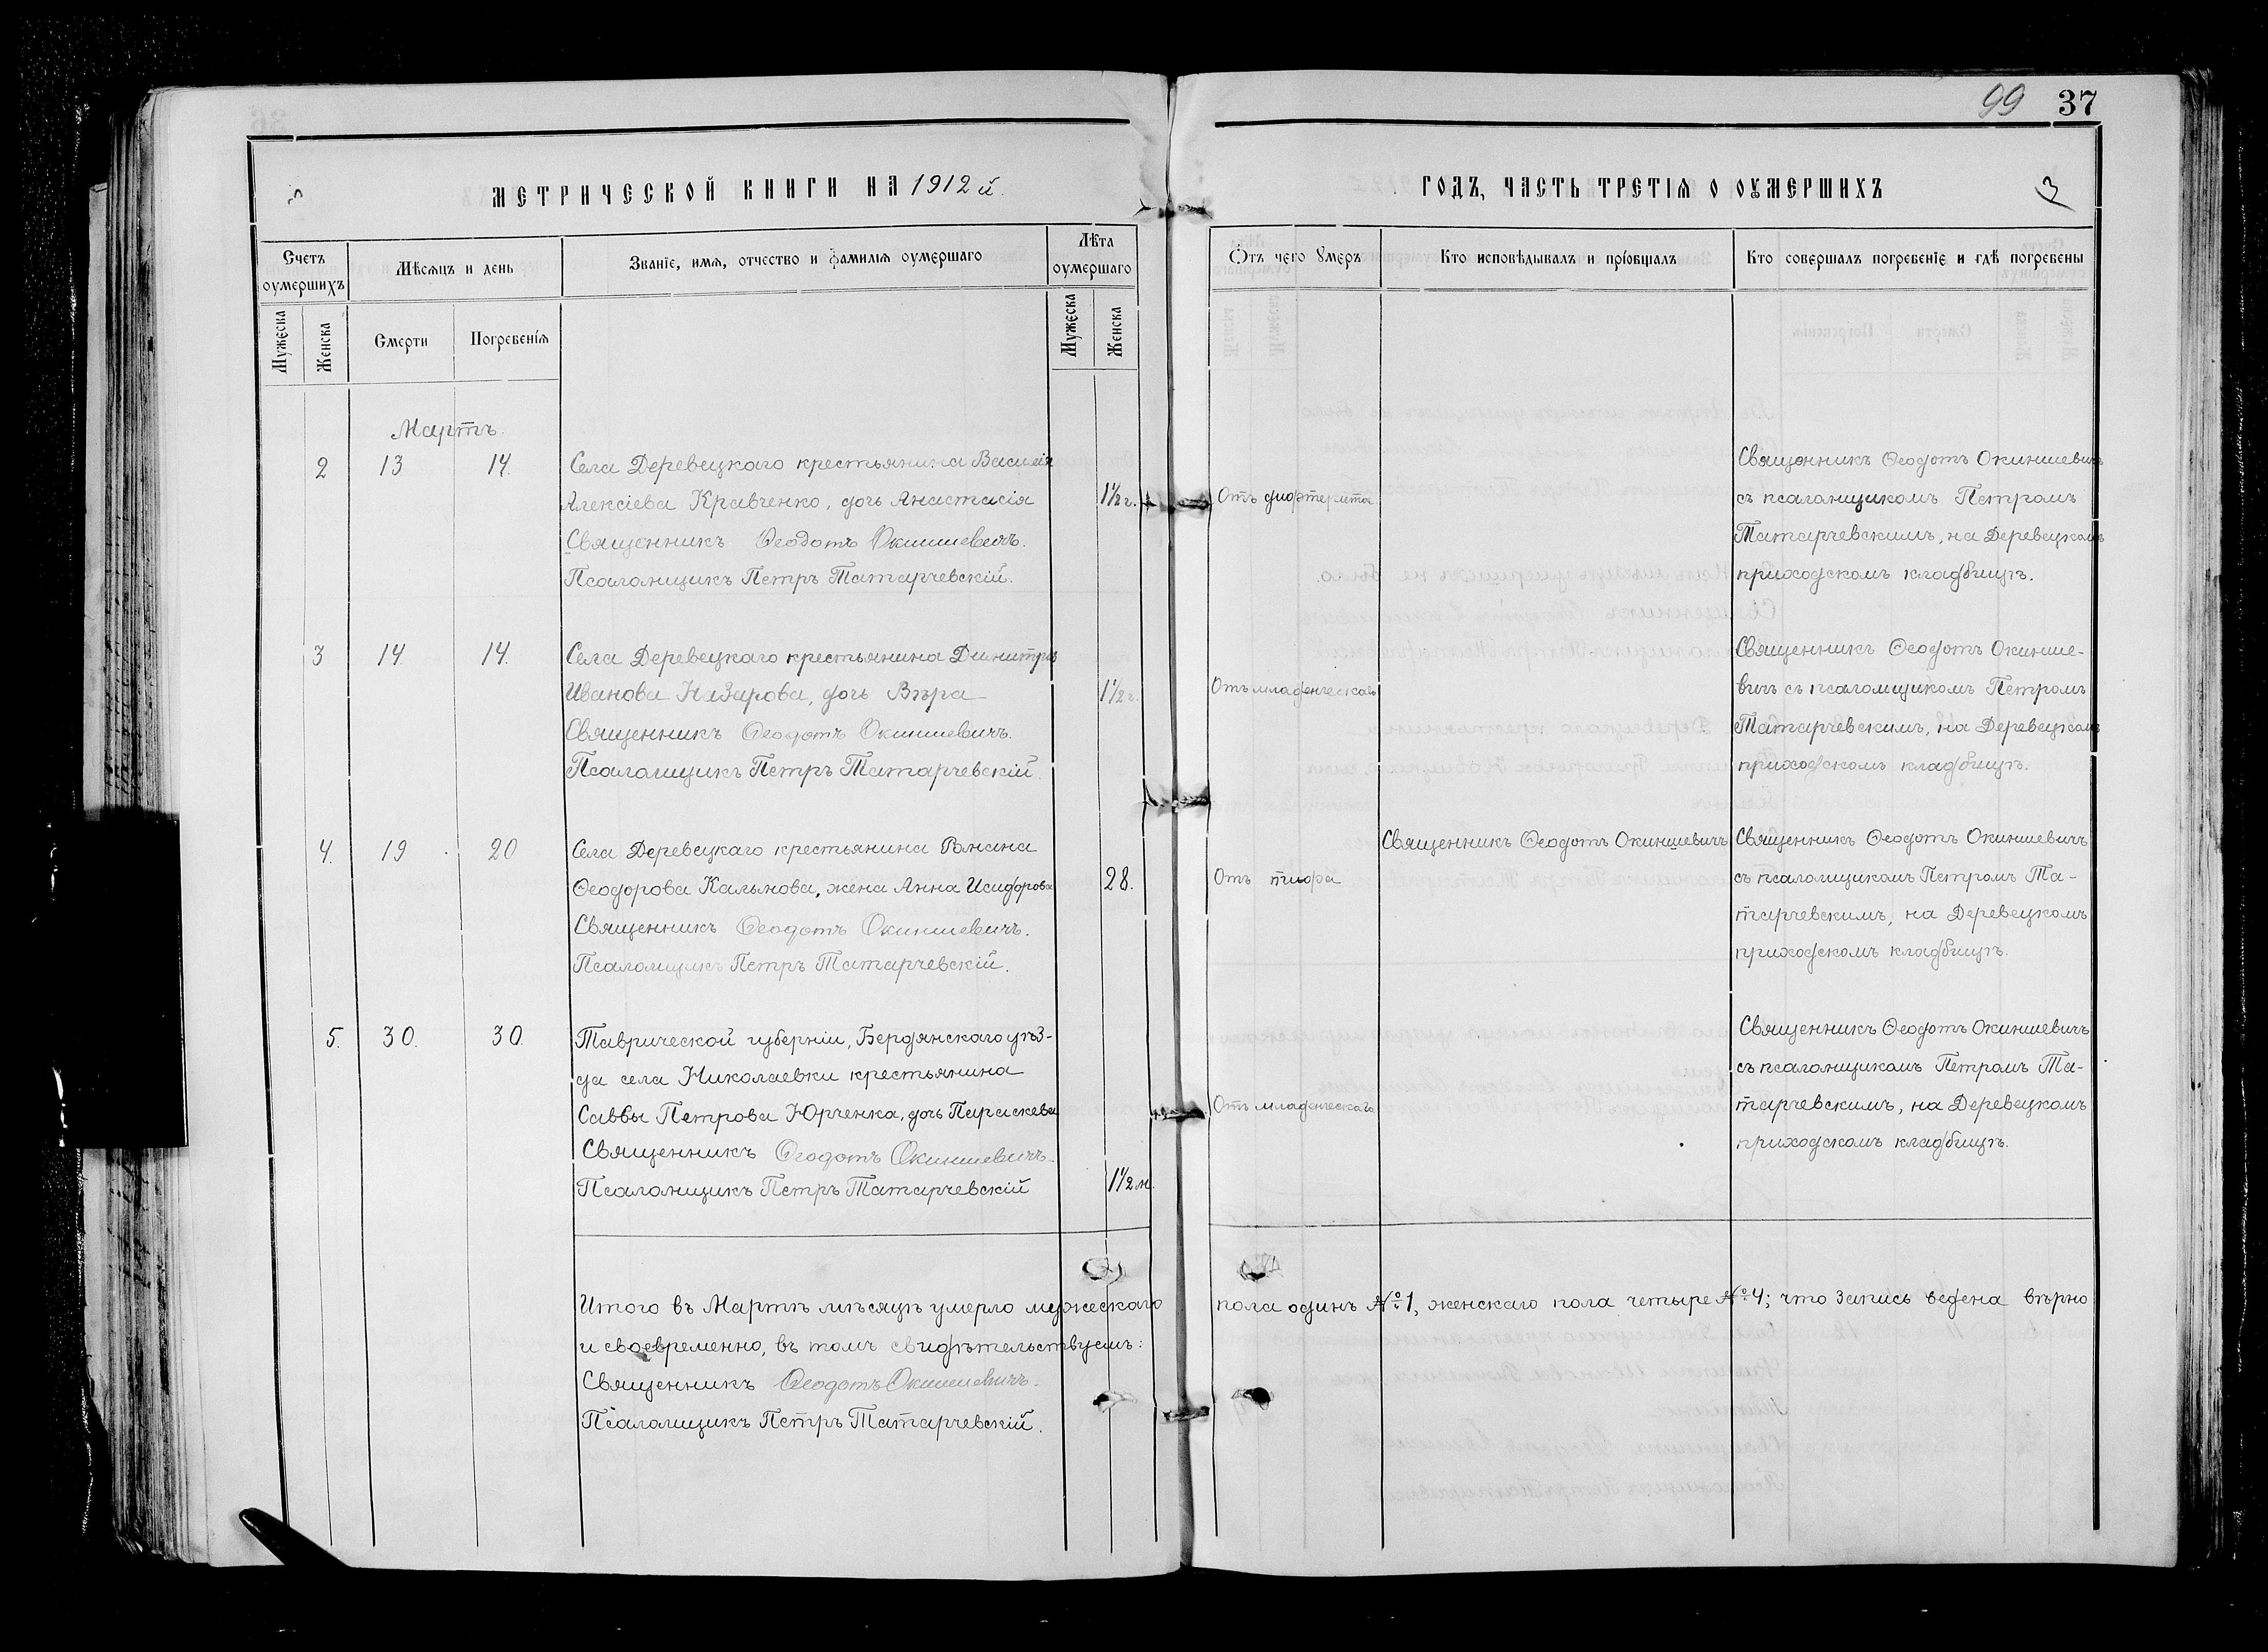 99 37
МЕТРИЧЕСКОЙ КНИГИ НА 1912 й.
ГОДЪ, ЧАСТЬ ТРЕТІЯ О ОУМЕРШИХЪ
3
Счетъ оумершихъ
Мѣсяцъ и день
Званіе, имя, отчество и фамилія оумершаго
Лѣта оумершаго
Отъ чего Умеръ
Кто исповѣдывалъ и пріобщалъ
Кто совершалъ погребеніе и гдѣ погребены
Мужеска
Женска
Смерти
Погребенія
Мужеска
Женска
Мартъ.
2 13 14. Села Деревецкаго крестьянина Василія
Алексіева Кравченко, дочь Анастасія
Священникъ Ѳеодотъ Окиншевичъ.
Псаломщикъ Петръ Татарчевскій.
1½ г.
Отъ дифтерита
Священникъ Ѳеодотъ Окиншевичъ
съ псаломщикомъ Петромъ
Татарчевскимъ, на Деревецкомъ
приходскомъ кладбищѣ.
3 14 14. Села Деревецкаго крестьянина Димитрія
Иванова Назарова, дочь Вѣра
Священникъ Ѳеодотъ Окиншевичъ.
Псаломщикъ Петръ Татарчевскій
1½ г.
Отъ младенческаго
Священникъ Ѳеодотъ Окинше-
вичъ съ псаломщикомъ Петромъ
Татарчевскимъ, на Деревецкомъ
приходскомъ кладбищѣ.
4. 19 20 Села Деревецкаго крестьянина Романа
Ѳеодорова Калынова, жена Анна Исидорова
Священникъ Ѳеодотъ Окиншевичъ.
Псаломщикъ Петръ Татарчевскій.
28.
Отъ тифа
Священникъ Ѳеодотъ Окиншевичъ
Священникъ Ѳеодотъ Окиншевичъ
съ псаломщикомъ Петромъ Та-
тарчевскимъ, на Деревецкомъ
приходскомъ кладбищѣ.
5. 30. 30. Таврической губерніи, Бердянскаго уѣз-
да села Николаевки крестьянина
Саввы Петрова Юрченка, дочь Параскева
Священникъ Ѳеодотъ Окиншевичъ.
Псаломщикъ Петръ Татарчевскій
1½ м.
Отъ младенческаго
Священникъ Ѳеодотъ Окиншевичъ
съ псаломщикомъ Петромъ Та-
тарчевскимъ, на Деревецкомъ
приходскомъ кладбищѣ.
Итого въ Мартѣ мѣсяцѣ умерло мужескаго пола одинъ №1, женскаго пола четыре №4; что запись ведена вѣрно
и своевременно, въ томъ свидѣтельствуемъ:
Священникъ Ѳеодотъ Окиншевичъ.
Псаломщикъ Петръ Татарчевскій.